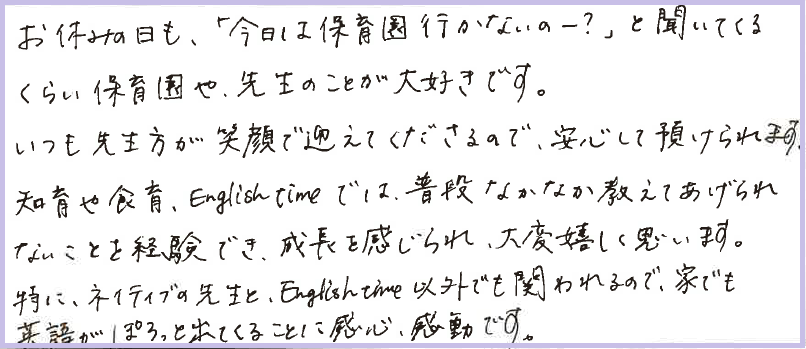 お休みの日も、「今日は保育園行かないのー?」と聞いてくる
くらい保育園や、先生のことが大好きです。
いつも先生方が笑顔で迎えてくださるので、安心して預けられます。
知育や食育、English timeでは、普段なかなか教えてあげられ
ないことを経験でき、成長を感じられ、大変嬉しく思います。
特に、ネイティブの先生と、English time以外でも関われるので、家でも
英語がぽろっと出てくることに感心、感動です。